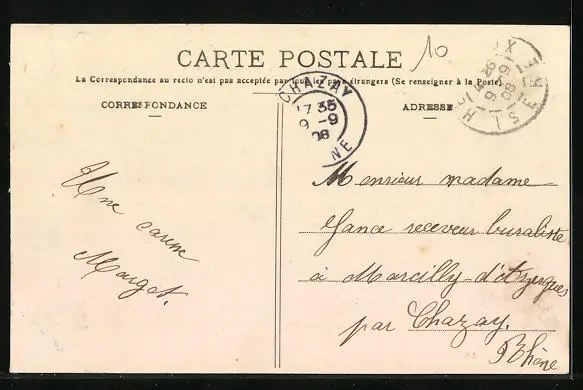 10
CARTE POSTALE
La Correspondance au recto n'est pas acceptée par tous les pays étrangers (Se renseigner à la Poste)
CORRESPONDANCE
ADRESSE
CHAZAY
17 35
9 -9
08
NE
4 26
9 9
08
ISERE
Une
Margot.
Monsieur madame
receveur buraliste
à Marcilly-d'Azergues
par Chazay.
Rhône